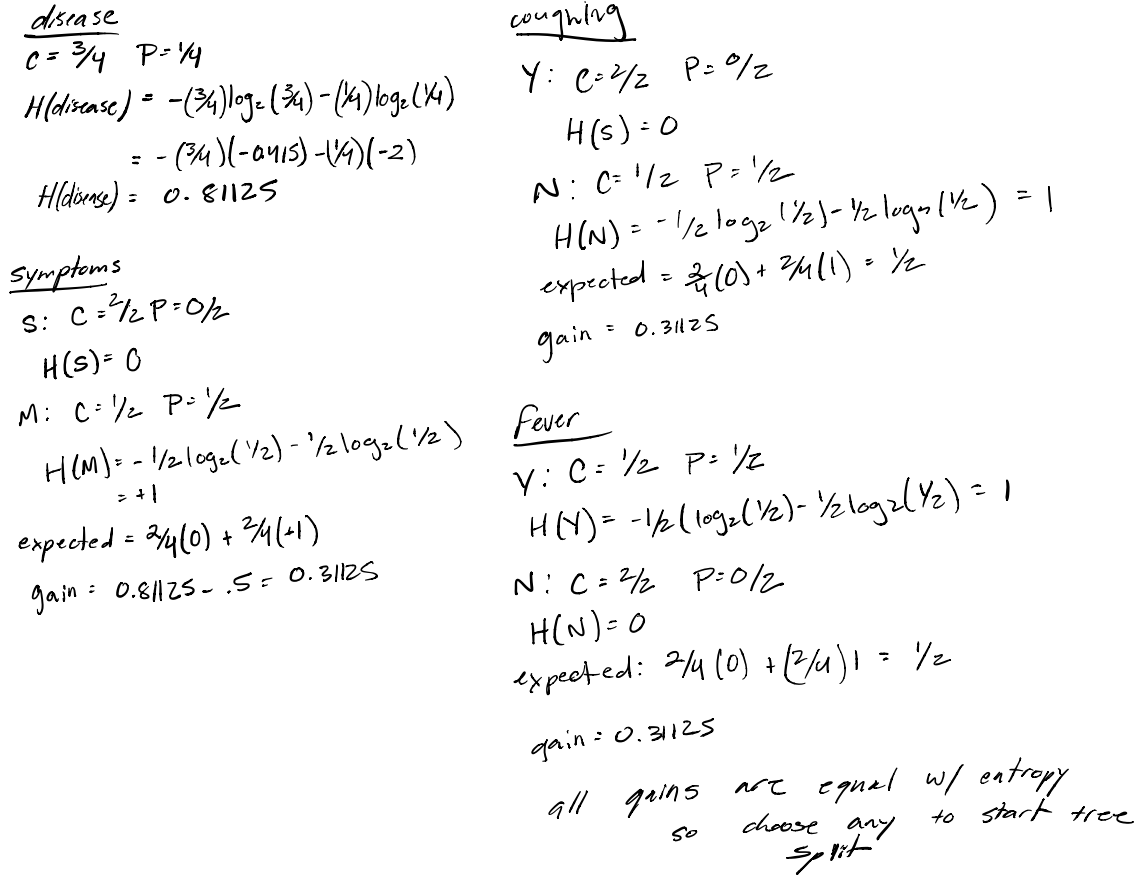 disease
C = 3/4 P = 1/4
H(disease) = -(3/4)log₂(3/4) - (1/4)log₂(1/4)
= -(3/4)(-0.415) - (1/4)(-2)
H(disease) = 0.81125
symptoms
S: C = 2/2 P = 0/2
H(S) = 0
M: C = 1/2 P = 1/2
H(M) = -1/2 log₂(1/2) - 1/2 log₂(1/2)
= +1
expected = 2/4(0) + 2/4(+1)
gain = 0.81125 - .5 = 0.31125
coughing
Y: C = 2/2 P = 0/2
H(S) = 0
N: C = 1/2 P = 1/2
H(N) = -1/2 log₂(1/2) - 1/2 log₂(1/2) = 1
expected = 2/4(0) + 2/4(1) = 1/2
gain = 0.31125
Fever
Y: C = 1/2 P = 1/2
H(Y) = -1/2(log₂(1/2) - 1/2 log₂(1/2) = 1
N: C = 2/2 P = 0/2
H(N) = 0
expected: 2/4(0) + (2/4)1 = 1/2
gain = 0.31125
all gains are equal w/ entropy
so choose any to start tree
split